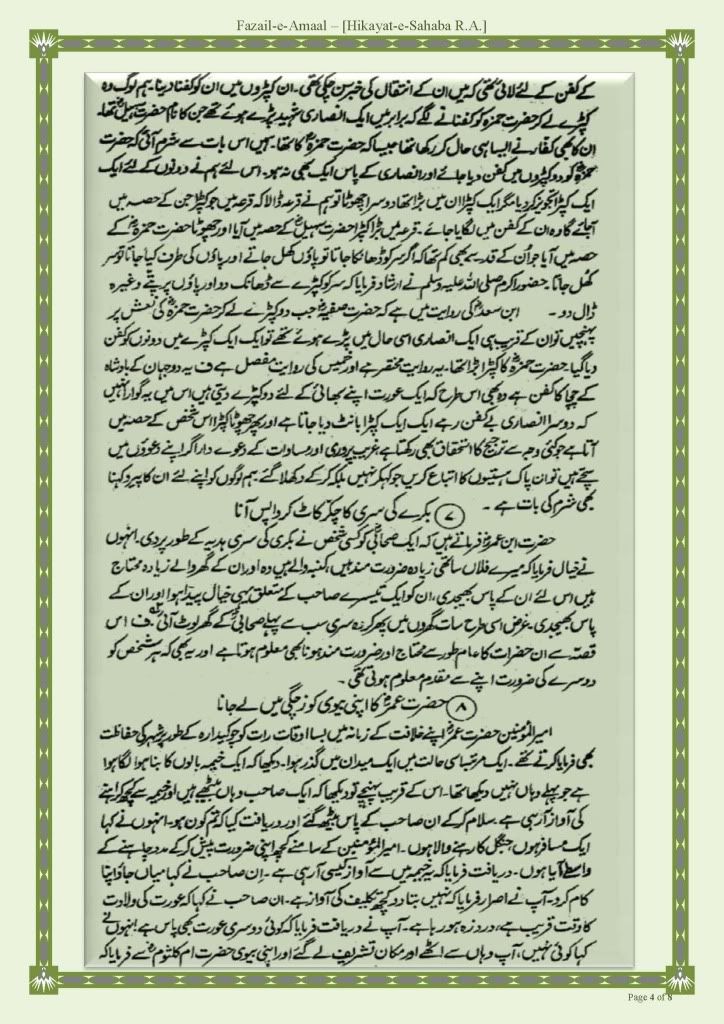 Fazail-e-Amaal – [Hikayat-e-Sahaba R.A.]
کے کفن کے لئے لائی تھی کہ میں ان کے انتقال کی خبر سن چکی تھی۔ ان کپڑوں میں ان کو کفنا دینا۔ ہم لوگ وہ
کپڑے لے کر حضرت حمزہؓ کو کفنانے لگے کہ برابر میں ایک انصاری شہید پڑے ہوئے تھے جن کا نام حضرت سہیلؓ تھا۔
ان کا بھی کفار نے ایسا ہی حال کر رکھا تھا جیسا کہ حضرت حمزہؓ کا تھا۔ ہمیں اس بات سے شرم آئی کہ حضرت
حمزہؓ کو دو کپڑوں میں کفن دیا جائے اور انصاری کے پاس ایک بھی نہ ہو۔ اس لئے ہم نے دونوں کے لئے ایک
ایک کپڑا تجویز کر دیا مگر ایک کپڑا ان میں بڑا تھا دوسرا چھوٹا تو ہم نے قرعہ ڈالا کہ قرعہ میں جو کپڑا جن کے حصہ میں
آجائے گا وہ ان کے کفن میں لگایا جائے۔ قرعہ میں بڑا کپڑا حضرت سہیلؓ کے حصہ میں آیا اور چھوٹا حضرت حمزہؓ کے
حصہ میں آیا جو ان کے قد سے بھی کم تھا کہ اگر سر کو ڈھانکا جاتا تو پاؤں کھل جاتے اور پاؤں کی طرف کیا جاتا تو سر
کھل جاتا۔ حضور اکرم صلی اللہ علیہ وسلم نے ارشاد فرمایا کہ سر کو کپڑے سے ڈھانک دو اور پاؤں پر پتے وغیرہ
ڈال دو۔ ابن سعدؓ کی روایت میں ہے کہ حضرت صفیہؓ جب دو کپڑے لے کر حضرت حمزہؓ کی نعش پر
پہنچیں تو ان کے قریب ہی ایک انصاری اسی حال میں پڑے ہوئے تھے تو ایک ایک کپڑے میں دونوں کو کفن
دیا گیا۔ حضرت حمزہؓ کا کپڑا بڑا تھا۔ یہ روایت مختصر ہے اور خمیس کی روایت مفصل ہے ف یہ دو جہان کے بادشاہ
کے چچا کا کفن ہے وہ بھی اس طرح کہ ایک عورت اپنے بھائی کے لئے دو کپڑے دیتی ہیں اس میں یہ گوارا نہیں
کہ دوسرا انصاری بے کفن رہے ایک ایک کپڑا بانٹ دیا جاتا ہے اور پھر چھوٹا کپڑا اس شخص کے حصہ میں
آتا ہے جو کئی وجہ سے ترجیح کا استحقاق بھی رکھتا ہے غریب پروری اور مساوات کے دعوے دار اگر اپنے دعووں میں
سچے ہیں تو ان پاک ہستیوں کا اتباع کریں جو کہہ کر نہیں بلکہ کر کے دکھلا گئے۔ ہم لوگوں کو اپنے لئے ان کا پیرو کہنا
بھی شرم کی بات ہے۔ ۷ بکرے کی سری کا چکر کاٹ کر واپس آنا
حضرت ابن عمرؓ فرماتے ہیں کہ ایک صحابیؓ کو کسی شخص نے بکری کی سری ہدیہ کے طور پر دی۔ انہوں
نے خیال فرمایا کہ میرے فلاں ساتھی زیادہ ضرورت مند ہیں، کنبہ والے ہیں وہ اور ان کے گھر والے زیادہ محتاج
ہیں اس لئے ان کے پاس بھیج دی، ان کو ایک تیسرے صاحب کے متعلق یہی خیال پیدا ہوا اور ان کے
پاس بھیج دی۔ غرض اسی طرح سات گھروں میں پھر کر وہ سری سب سے پہلے صحابیؓ کے گھر لوٹ آئی۔ ف اس
قصہ سے ان حضرات کا عام طور سے محتاج اور ضرورت مند ہونا بھی معلوم ہوتا ہے اور یہ بھی کہ ہر شخص کو
دوسرے کی ضرورت اپنے سے مقدم معلوم ہوتی تھی۔
۸ حضرت عمرؓ کا اپنی بیوی کو زچگی میں لے جانا
امیر المؤمنین حضرت عمرؓ اپنے خلافت کے زمانہ میں بسا اوقات رات کو چوکیدارہ کے طور پر شہر کی حفاظت
بھی فرمایا کرتے تھے۔ ایک مرتبہ اسی حالت میں ایک میدان میں گذر ہوا۔ دیکھا کہ ایک خیمہ بالوں کا بنا ہوا لگا ہوا
ہے جو پہلے وہاں نہیں دیکھا تھا۔ اس کے قریب پہنچے تو دیکھا کہ ایک صاحب وہاں بیٹھے ہیں اور خیمہ سے کچھ کراہنے
کی آواز آرہی ہے۔ سلام کر کے ان صاحب کے پاس بیٹھ گئے اور دریافت کیا کہ تم کون ہو۔ انہوں نے کہا
ایک مسافر ہوں، جنگل کا رہنے والا ہوں۔ امیر المؤمنین کے سامنے کچھ اپنی ضرورت پیش کر کے مدد چاہنے کے
واسطے آیا ہوں۔ دریافت فرمایا کہ یہ خیمہ میں سے آواز کیسی آرہی ہے۔ ان صاحب نے کہا میاں جاؤ اپنا
کام کرو۔ آپ نے اصرار فرمایا کہ نہیں بتا دو کچھ تکلیف کی آواز ہے۔ ان صاحب نے کہا کہ عورت کی ولادت
کا وقت قریب ہے، درد زہ ہو رہا ہے۔ آپ نے دریافت فرمایا کہ کوئی دوسری عورت بھی پاس ہے انہوں نے
کہا کوئی نہیں، آپ وہاں سے اٹھے اور مکان تشریف لے گئے اور اپنی بیوی حضرت ام کلثومؓ سے فرمایا کہ
Page 4 of 8